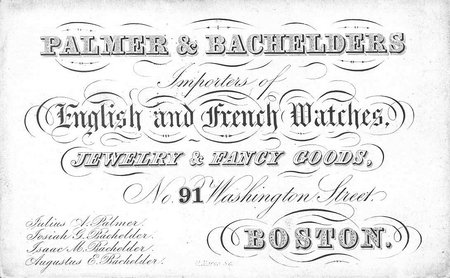 PALMER & BACHELDERS
Importers of
English and French Watches,
JEWELRY & FANCY GOODS,
No. 91 Washington Street.
BOSTON.
Julius A. Palmer.
Josiah G. Bachelder.
Isaac M. Bachelder.
Augustus E. Bachelder.